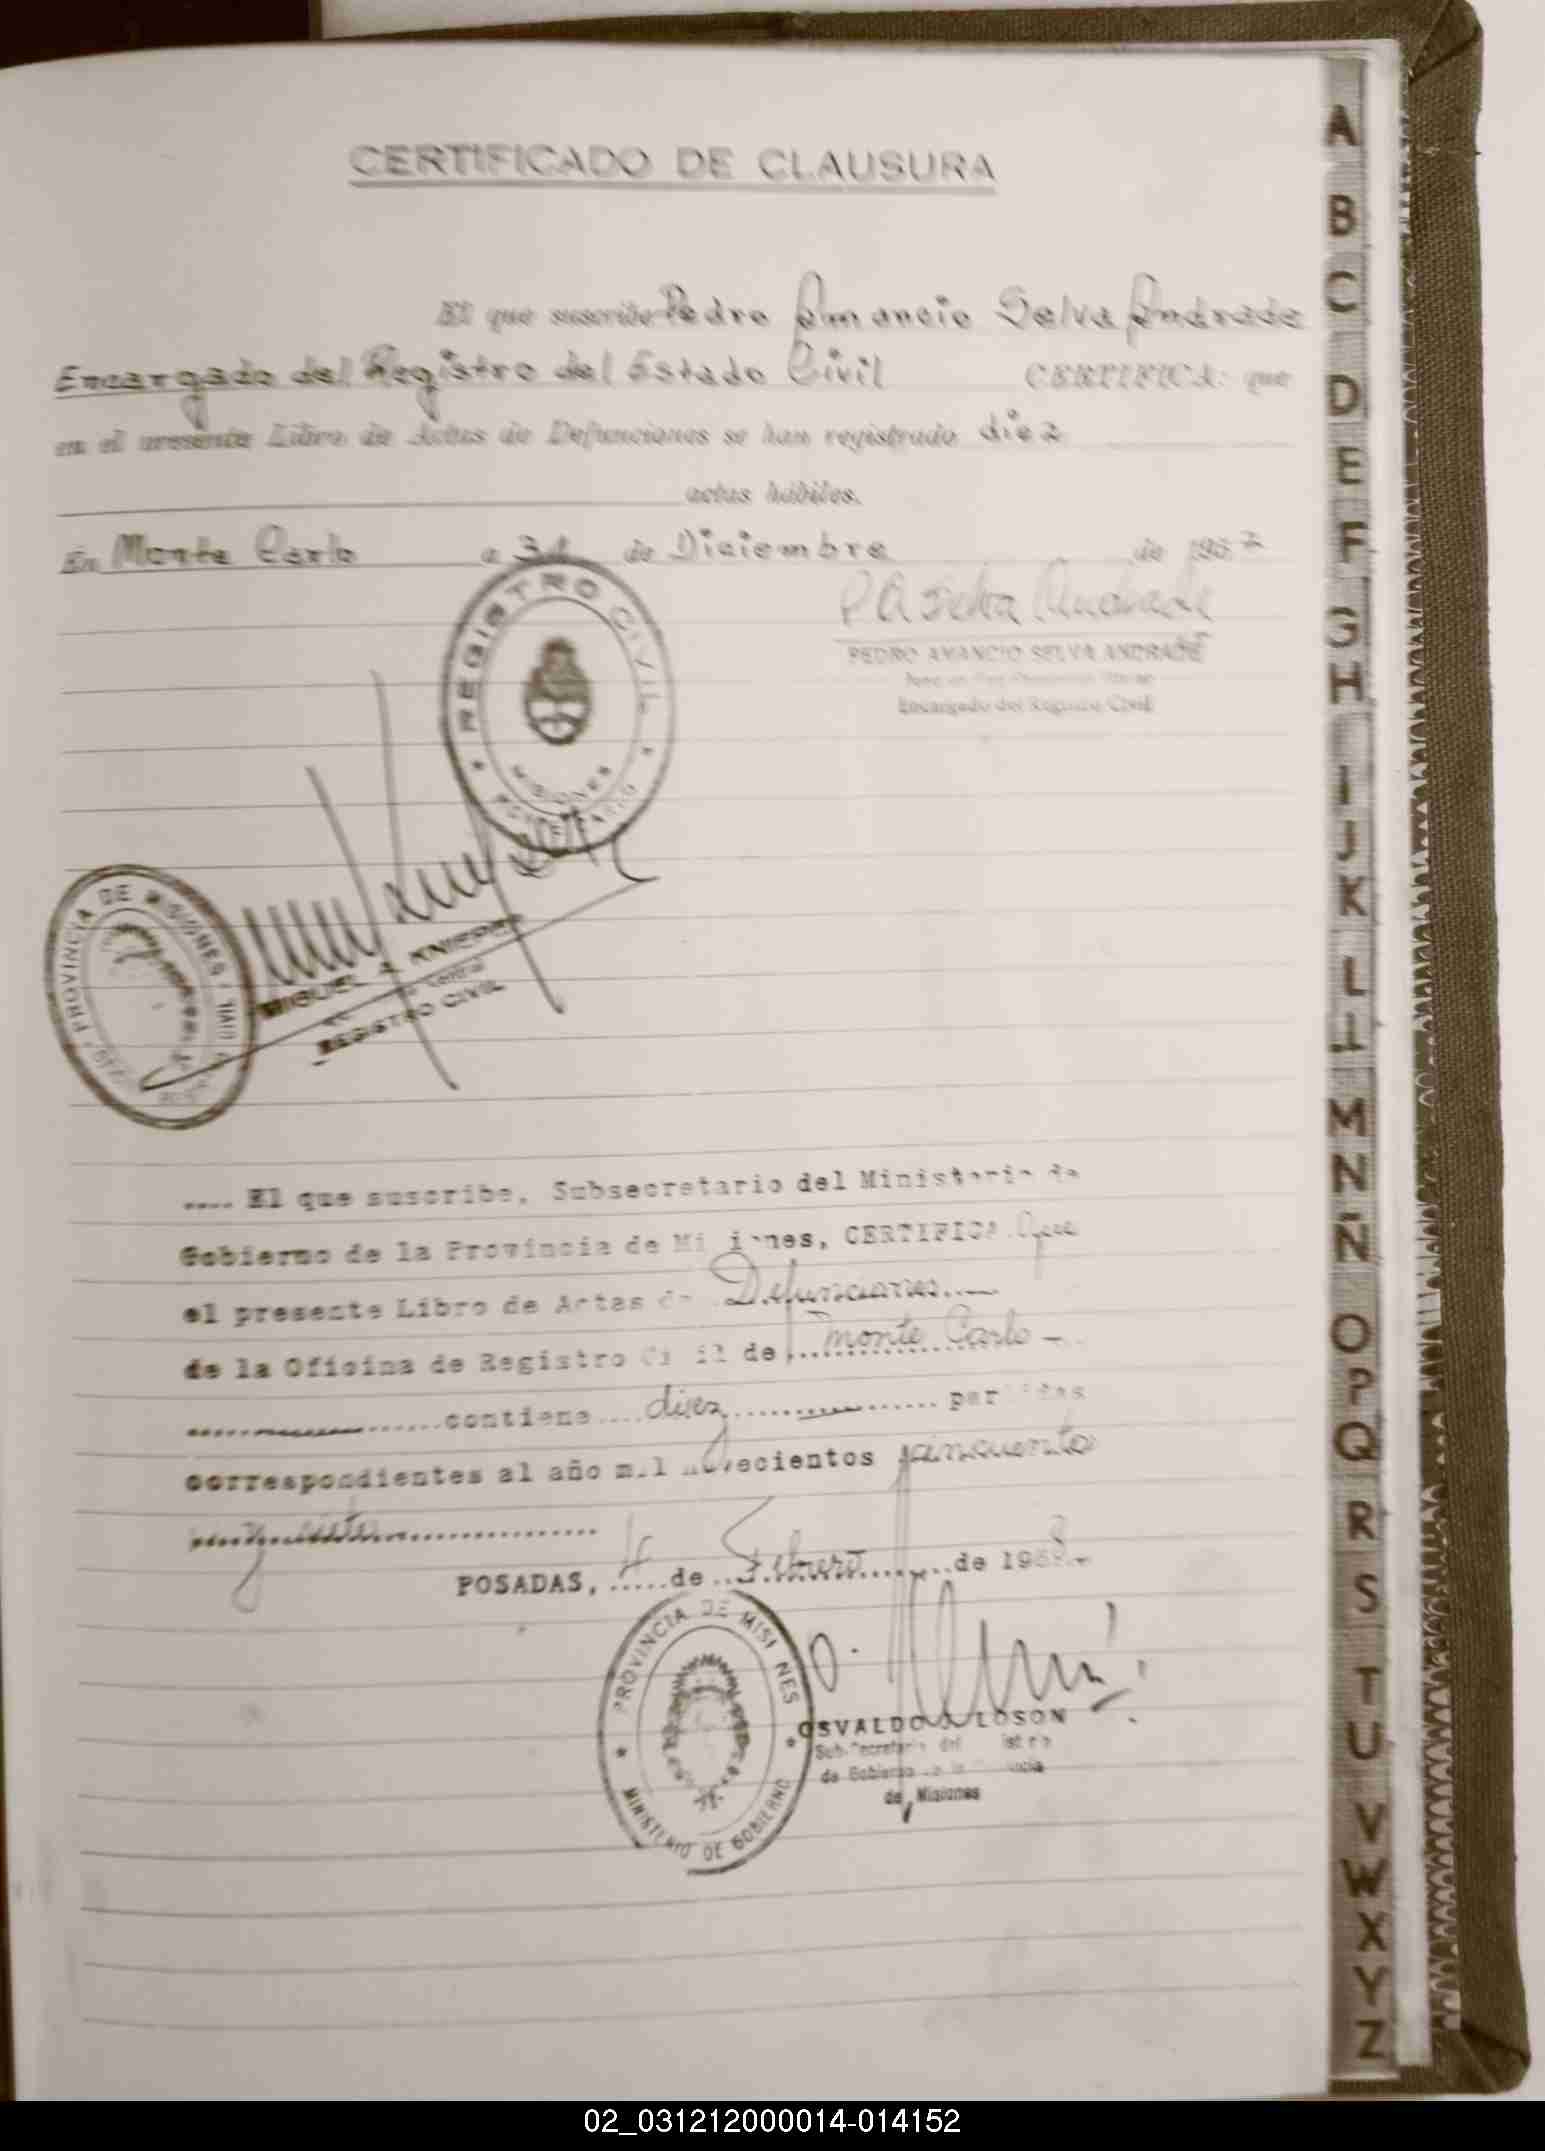 CERTIFICADO DE CLAUSURA
El que suscribe Pedro Amancio Selva Andrade
Encargado del Registro del Estado Civil CERTIFICA: que
en el presente Libro de Actas de Defunciones se han registrado diez
actas hábiles.
En Monte Carlo a 31 de Diciembre de 1957
P A Selva Andrade
PEDRO AMANCIO SELVA ANDRADE
Encargado del Registro Civil
REGISTRO CIVIL
MISIONES
PROVINCIA DE MISIONES
MIGUEL A. KNIEPER
REGISTRO CIVIL
.... El que suscribe, Subsecretario del Ministerio de
Gobierno de la Provincia de Misiones, CERTIFICA: Que
el presente Libro de Actas de Defunciones....
de la Oficina de Registro Civil de .... Monte Carlo -
.... contiene .... diez .... partidas
correspondientes al año mil novecientos cincuenta
y siete ....
POSADAS, 4 de Febrero de 1958.-
PROVINCIA DE MISIONES
MINISTERIO DE GOBIERNO
OSVALDO LOSON
Sub-Secretario del Ministerio
de Gobierno de la Provincia
de Misiones
A
B
C
D
E
F
G
H
I
J
K
L
LL
M
N
Ñ
O
P
Q
R
S
T
U
V
W
X
Y
Z
02_031212000014-014152